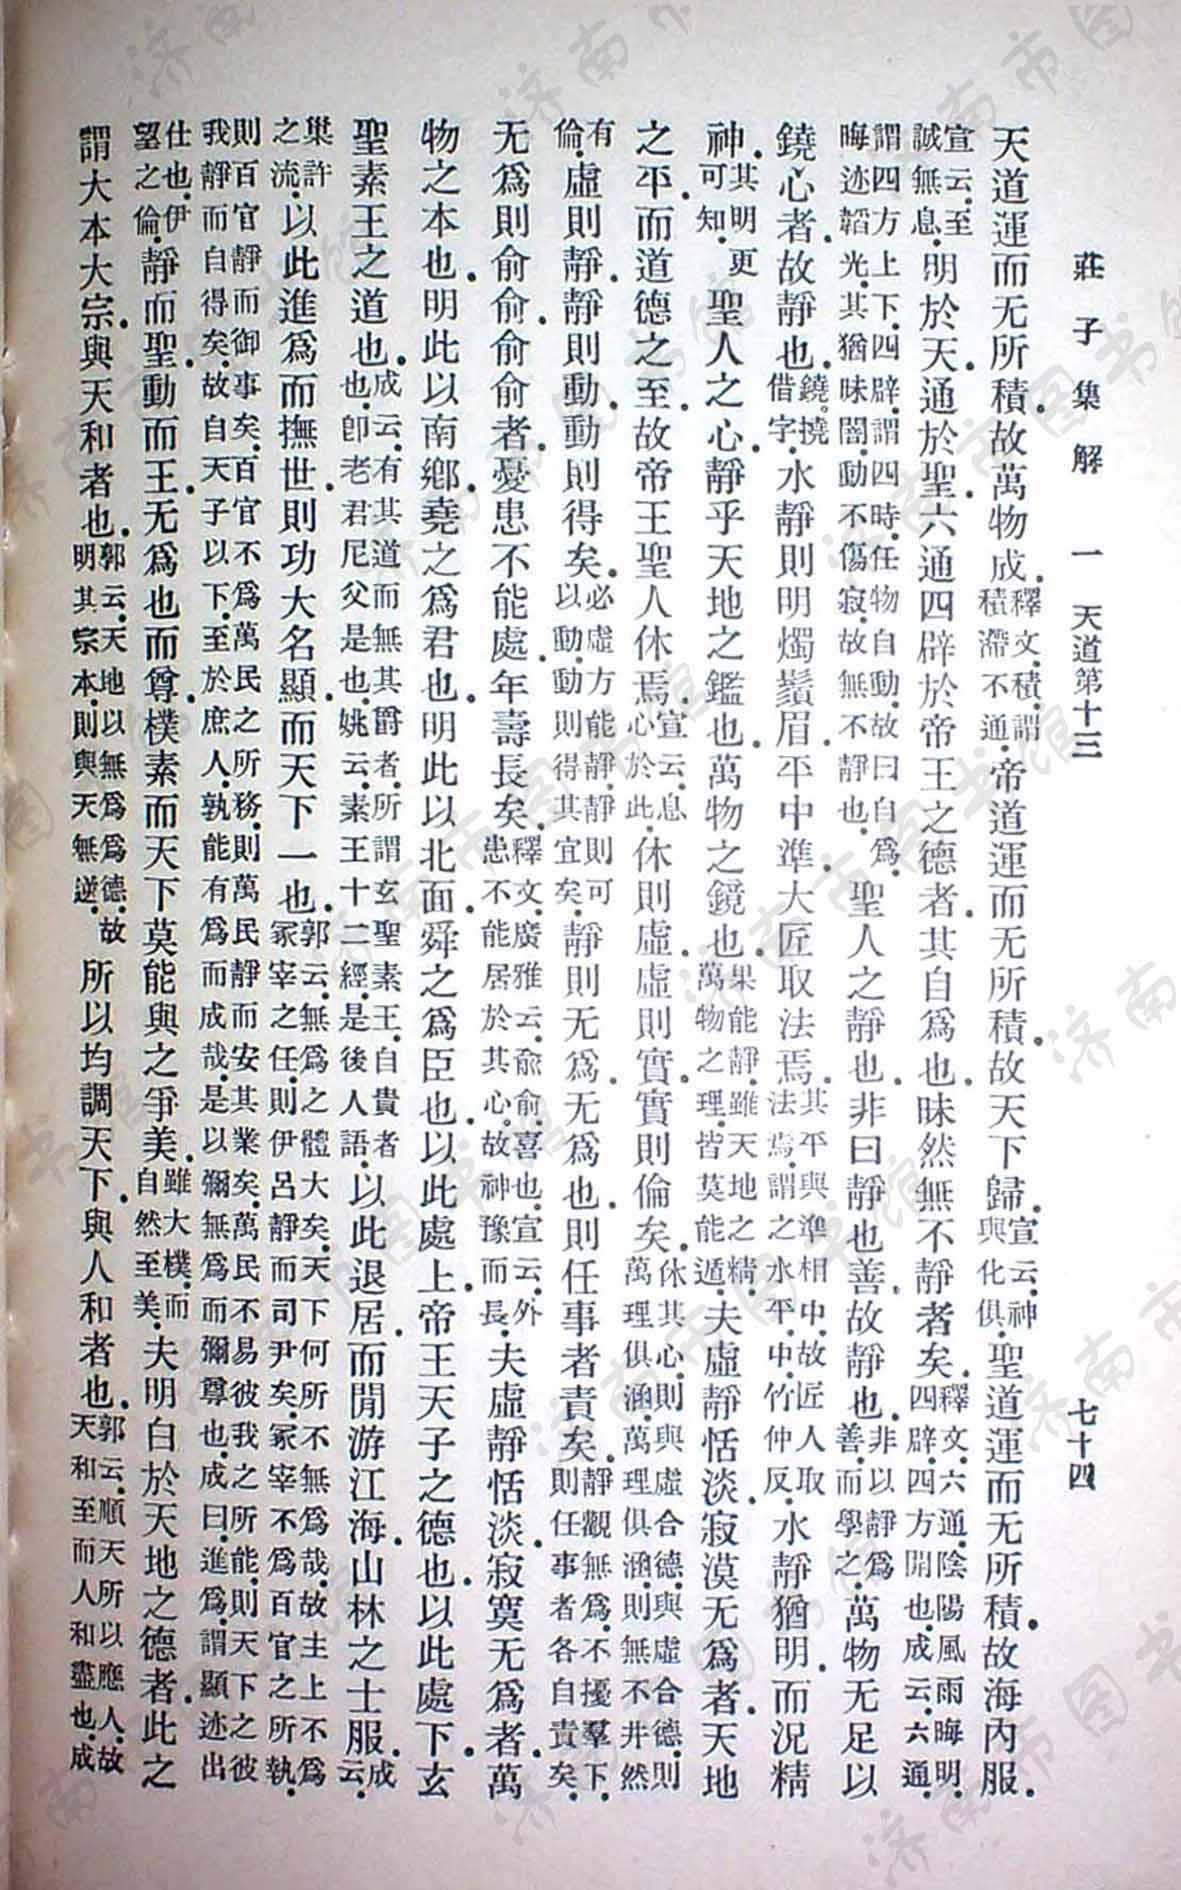 莊子集解 一 天道第十三 七十四
天道運而无所積.故萬物成.釋文.積.謂積滯不通.帝道運而无所積.故天下歸.宣云.神與化俱.聖道運而无所積.故海內服.
宣云.至誠無息.明於天.通於聖.六通四辟於帝王之德者.其自爲也.昧然無不靜者矣.釋文.六通.陰陽風雨晦明.四辟.四方開也.成云.六通.
謂四方上下.四辟.謂四時.任物自動.故曰自爲.晦迹韜光.其猶昧闇.動不傷寂.故無不靜也.聖人之靜也.非曰靜也善.故靜也.非以靜爲善而學之.萬物无足以
鐃心者.故靜也.鐃.撓借字.水靜則明燭鬚眉.平中準.大匠取法焉.其平與準相中.故匠人取法焉.謂之水平.中.竹仲反.水靜猶明.而況精
神.其明更可知.聖人之心靜乎.天地之鑑也.萬物之鏡也.果能靜.雖天地之精.萬物之理.皆莫能遁.夫虛靜恬淡.寂漠无爲者.天地
之平.而道德之至.故帝王聖人休焉.宣云.息心於此.休則虛.虛則實.實則倫矣.休其心.則與虛合德.與虛合德.則萬理俱涵.萬理俱涵.則無不井然
有倫.虛則靜.靜則動.動則得矣.必虛方能靜.靜則可以動.動則得其宜矣.靜則无爲.无爲也.則任事者責矣.靜觀無爲.不擾羣下.則任事者各自責矣.
无爲則俞俞.俞俞者.憂患不能處.年壽長矣.釋文.廣雅云.俞俞.喜也.宣云.外患不能居於其心.故神豫而長.夫虛靜恬淡.寂寞无爲者.萬
物之本也.明此以南鄉.堯之爲君也.明此以北面.舜之爲臣也.以此處上.帝王天子之德也.以此處下.玄
聖素王之道也.成云.有其道而無其爵者.所謂玄聖素王.自貴者也.卽老君尼父是也.姚云.素王十二經.是後人語.以此退居.而閒游江海.山林之士服.成云.
巢許之流.以此進爲而撫世.則功大名顯.而天下一也.郭云.無爲之體大矣.天下何所不無爲哉.故主上不爲冢宰之任.則伊呂靜而司尹矣.冢宰不爲百官之所執.
則百官靜而御事矣.百官不爲萬民之所務.則萬民靜而安其業矣.萬民不易彼我之所能.則天下之彼我靜而自得矣.故自天子以下.至於庶人.孰能有爲而成哉.是以彌無爲而彌尊也.成曰.進爲.謂顯迹出
仕也.伊望之倫.靜而聖.動而王.无爲也而尊.樸素而天下莫能與之爭美.雖大樸.而自然至美.夫明白於天地之德者.此之
謂大本大宗.與天和者也.郭云.天地以無爲爲德.故明其宗本.則與天無逆.所以均調天下.與人和者也.郭云.順天所以應人.故天和至而人和盡也.成